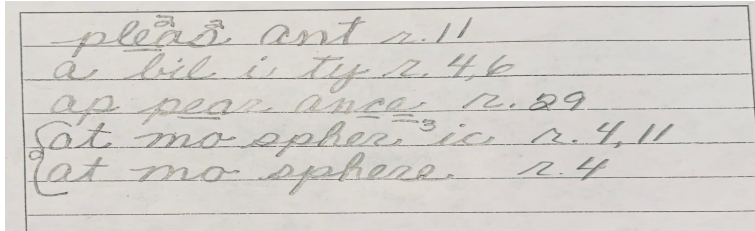 pleas ant r. 11
a bil i ty r. 4, 6
ap pear ance r. 29
at mo spher ic r. 4, 11
at mo sphere r. 4